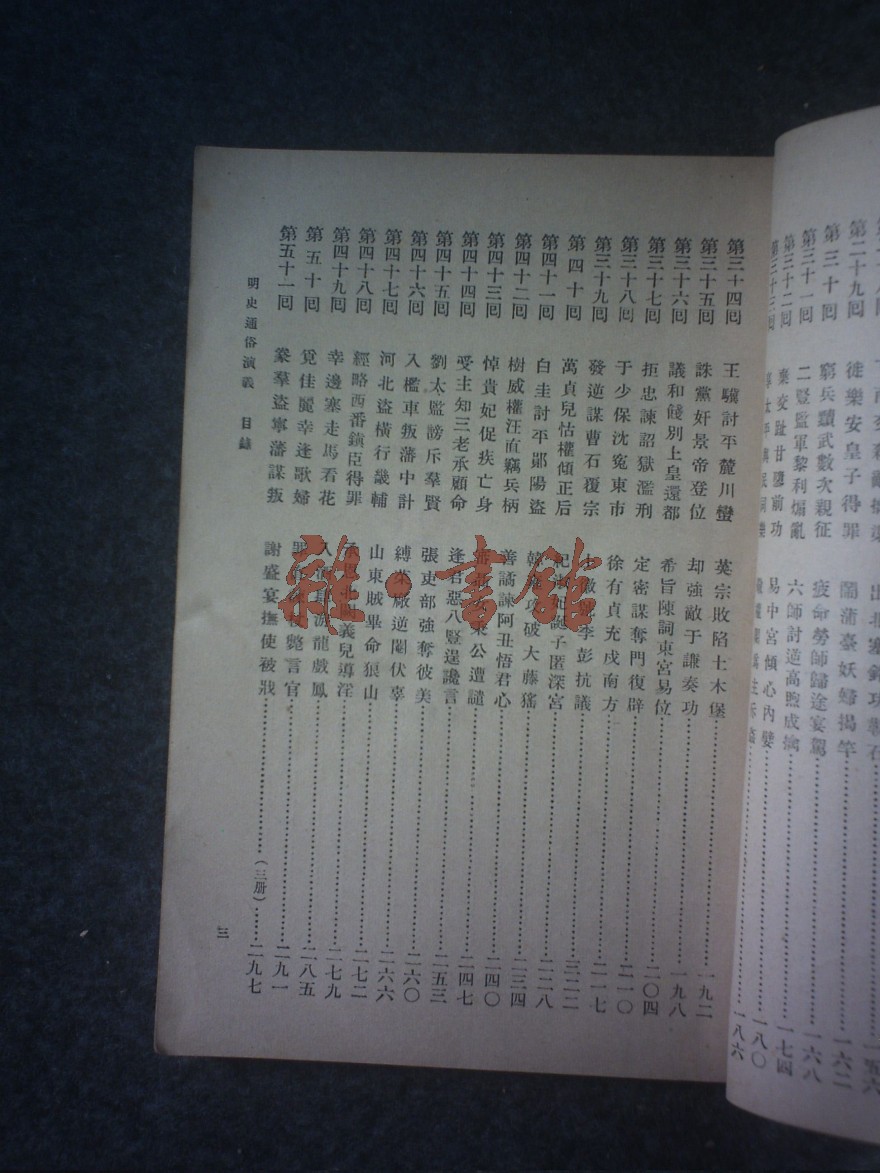 第二十九回 徙樂安皇子得罪 鬧蒲臺妖婦揭竿 一六二
第三十回 窮兵黷武數次親征 疲命勞師歸途宴駕 一六八
第三十一回 二豎監軍黎利煽亂 六師討逆高煦成擒 一七四
第三十二回 棄交趾甘隳前功 易中宮傾心內嬖 一八〇
第三十三回 一八六
第三十四回 王驥討平麓川蠻 英宗敗陷土木堡 一九二
第三十五回 誅黨奸景帝登位 却強敵于謙奏功 一九八
第三十六回 議和餞別上皇還都 希旨陳詞東宮易位 二〇四
第三十七回 拒忠諫詔獄濫刑 定密謀奪門復辟 二一〇
第三十八回 于少保沈冤東市 徐有貞充戍南方 二一七
第三十九回 發逆謀曹石覆宗 李彭抗議 二二二
第四十回 萬貞兒怙權傾正后 紀淑妃誕子匿深宮 二二八
第四十一回 白圭討平鄖陽盜 韓雍攻破大藤猺 二三四
第四十二回 樹威權汪直竊兵柄 善譎諫阿丑悟君心 二四〇
第四十三回 悼貴妃促疾亡身 審莊女東公遭譴 二四七
第四十四回 受主知三老承顧命 逢君惡八豎逞讒言 二五三
第四十五回 劉太監謗斥羣賢 張吏部強奪彼美 二六〇
第四十六回 入檻車叛藩中計 縛菜廠逆閹伏辜 二六六
第四十七回 河北盜橫行畿輔 山東賊畢命狼山 二七二
第四十八回 經略西番鎮臣得罪 承恩北闕義兒導淫 二七九
第四十九回 幸邊塞走馬看花 入酒肆游龍戲鳳 二八五
第五十回 覓佳麗幸逢歌婦 罪 斃言官 二九一
第五十一回 豢羣盜寧藩謀叛 謝盛宴撫使被戕 （三册） 二九七
明史通俗演義 目錄
三
雜·書館